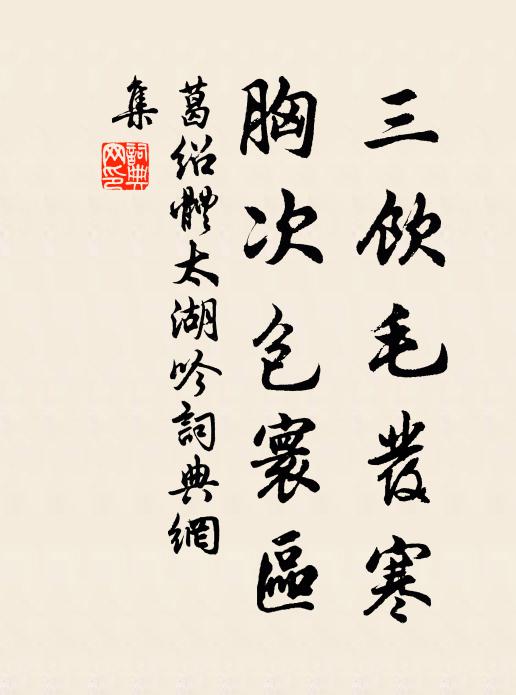 三飲毛發寒
胸次包寰區
葛紹體太湖吟詞典網
集
詞典
网印